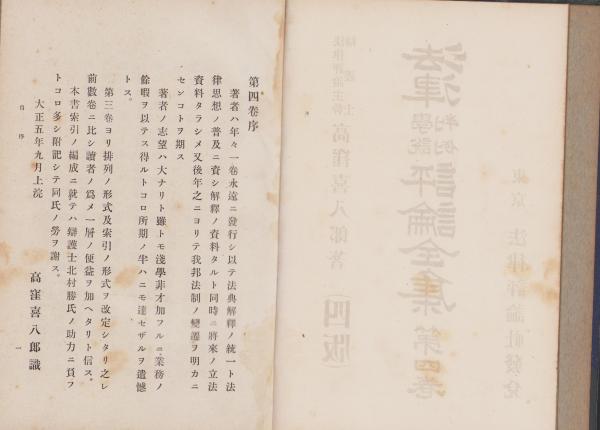 第四卷序
著者ハ年々一卷永遠ニ發行シ以テ法典解釋ノ統一ト法
律思想ノ普及ニ資シ解釋ノ資料タルト同時ニ將來ノ立法
資料タラシメ又後年之ニヨリテ我邦法制ノ變遷ヲ明カニ
センコトヲ期ス
著者ノ志望ハ大ナリト雖トモ淺學非才加フルニ業務ノ
餘暇ヲ以テス得ルトコロ所期ノ半ハニモ達セザルヲ遺憾
トス。
第三卷ヨリ排列ノ形式及索引ノ形式ヲ改定シタリ之レ
前數卷ニ比シ讀者ノ爲メ一層ノ便益ヲ加ヘタリト信ス。
本書索引ノ編成ニ就テハ辯護士北村勝氏ノ助力ニ負フ
トコロ多シ附記シテ同氏ノ勞ヲ謝ス。
大正五年九月上浣
高窪喜八郎識
自序
一
東京 法律評論社發兌
法律 學說 判例 評論全集 第四卷
高窪喜八郎著
(四版)